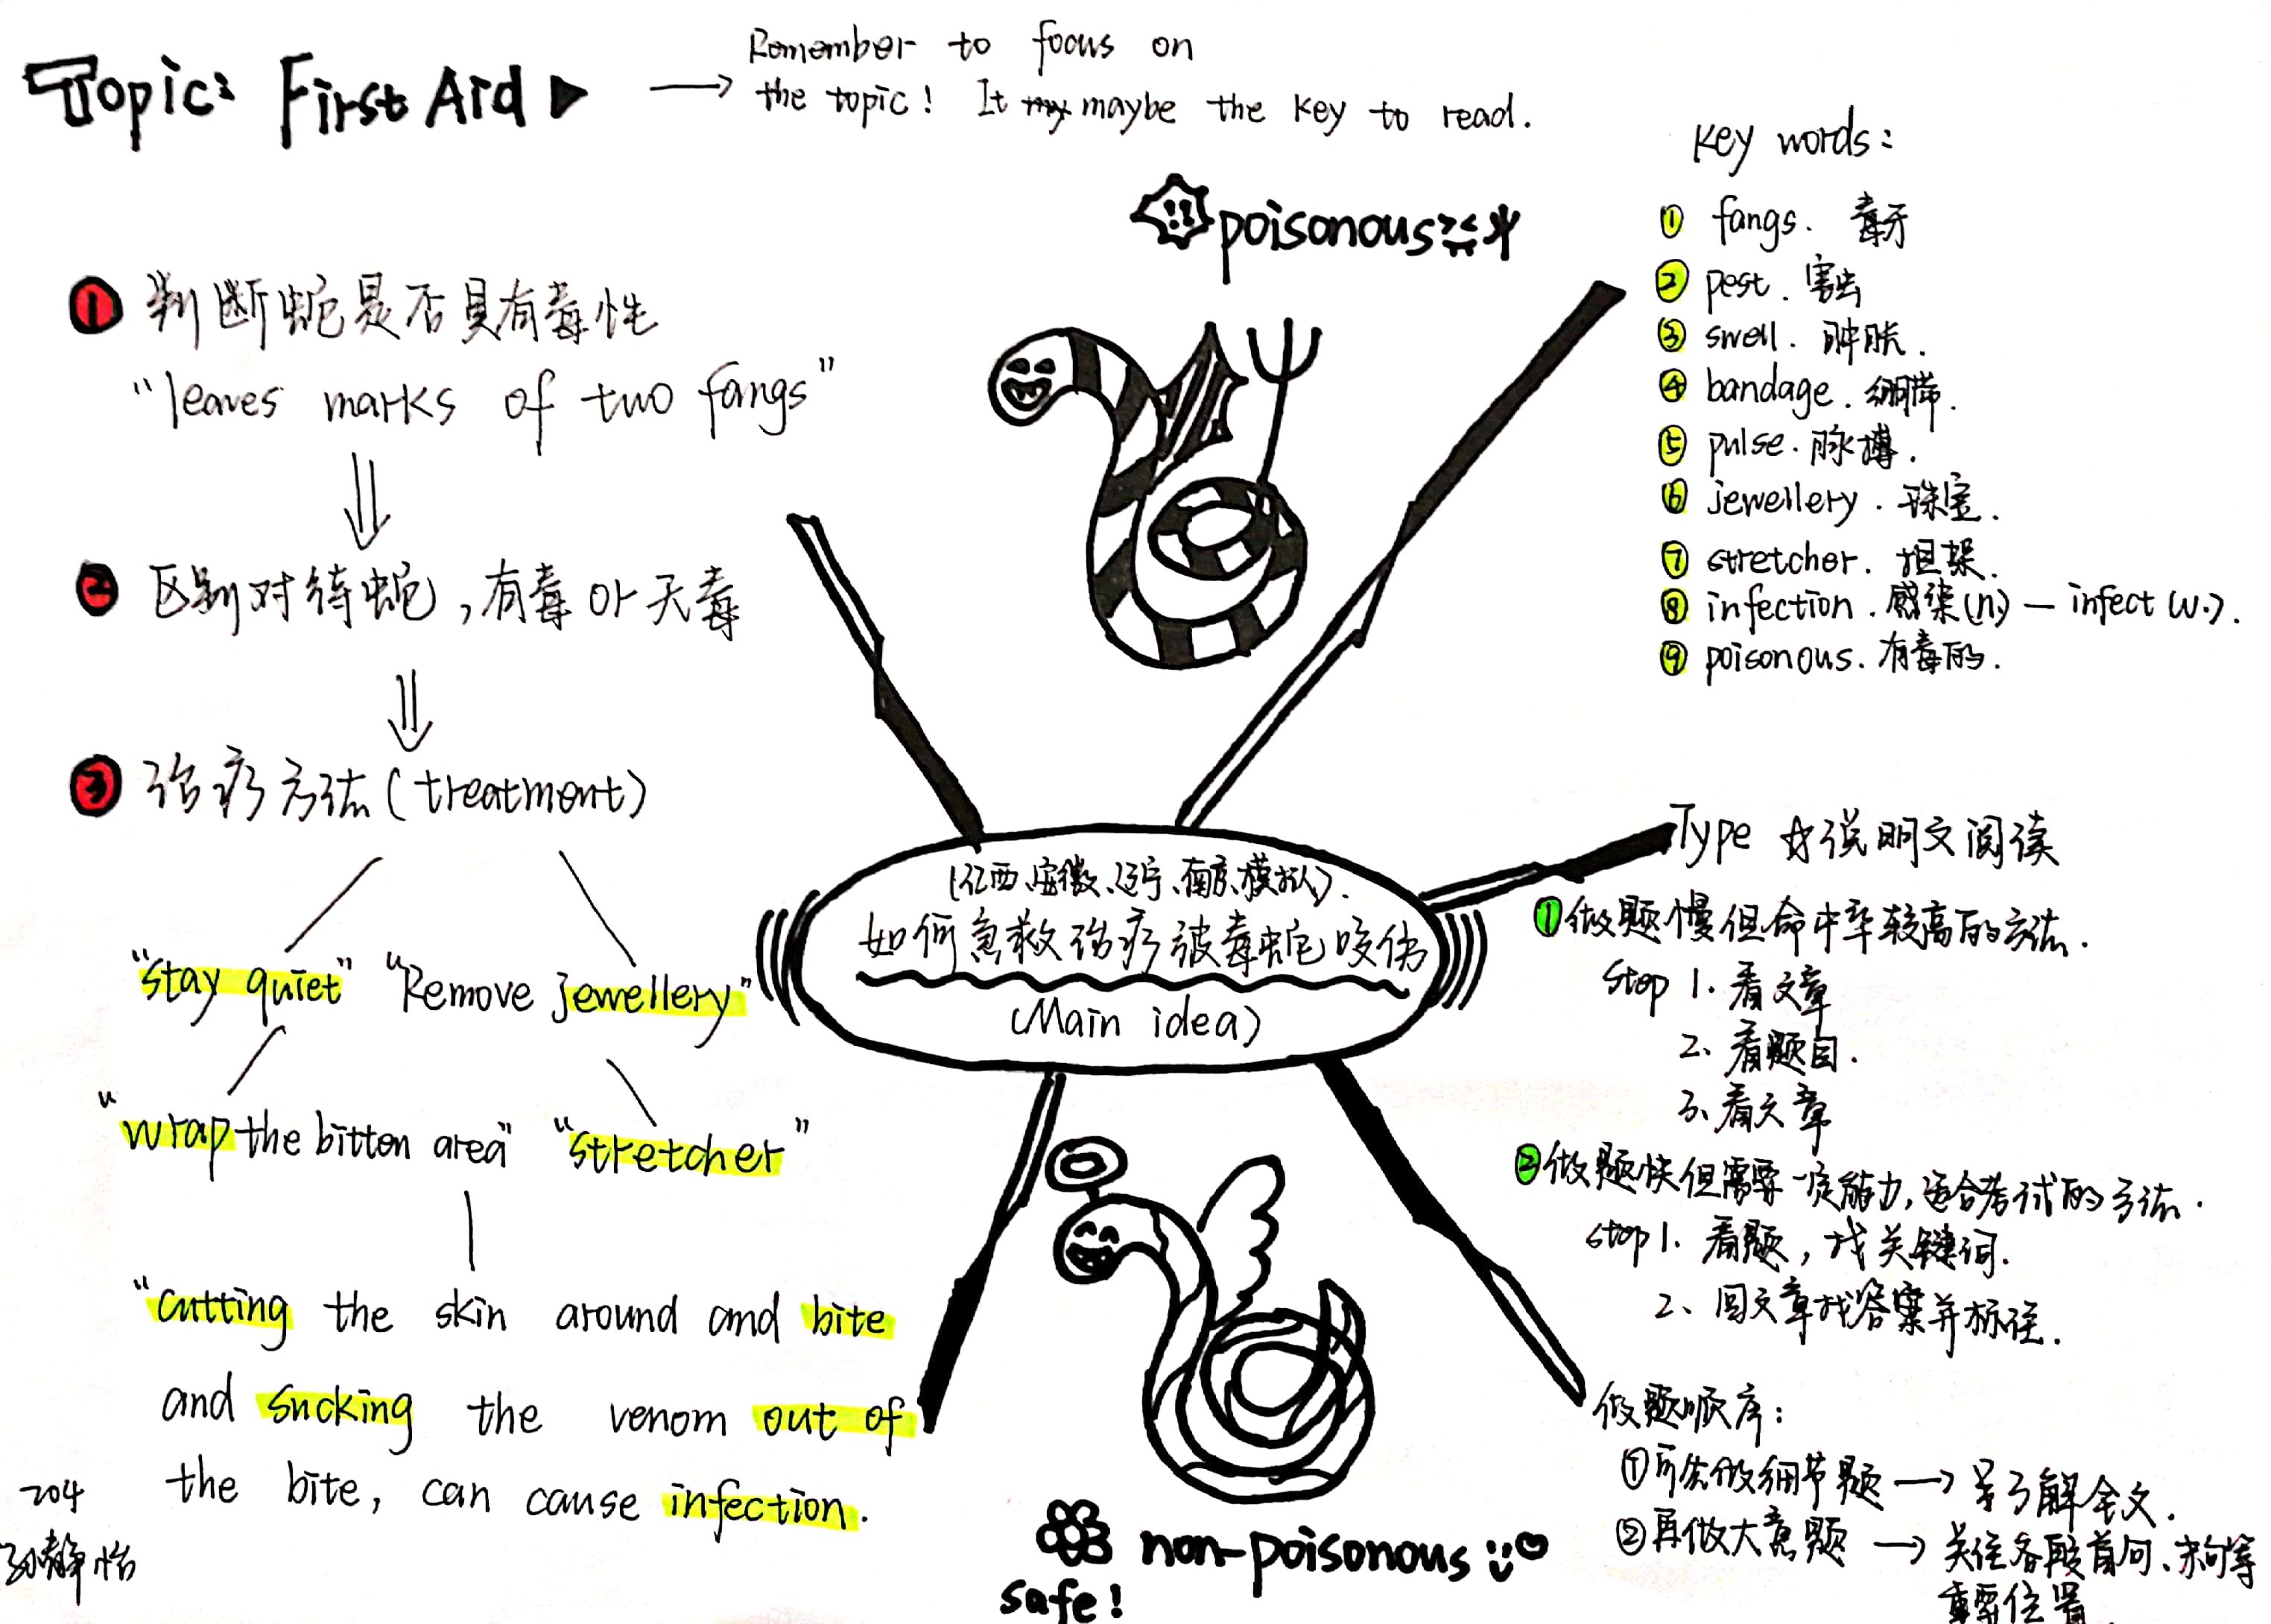 Topic: First Aid
Remember to focus on
the topic! It maybe the key to read.
① 判断蛇是否具有毒性
"leaves marks of two fangs"
② 区别对待蛇,有毒 or 无毒
③ 治疗方法(treatment)
"stay quiet" "Remove jewellery"
"wrap the bitten area" "stretcher"
"cutting the skin around and bite
and sucking the venom out of
the bite, can cause infection.
204
静怡
poisonous
(江西、安徽、辽宁、南京、模拟).
如何急救治疗被毒蛇咬伤
(Main idea)
non-poisonous
safe!
key words:
① fangs. 毒牙
② pest. 害虫
③ swell. 肿胀.
④ bandage. 绷带.
⑤ pulse. 脉搏.
⑥ jewellery. 珠宝.
⑦ stretcher. 担架.
⑧ infection. 感染(n.) — infect (v.).
⑨ poisonous. 有毒的.
Type ☆说明文阅读
①做题慢但命中率较高的方法.
Step 1. 看文章
2. 看题目.
3. 看文章
②做题快但需要一定能力,适合考试的方法.
step 1. 看题,找关键词.
2、回文章找答案并标注.
做题顺序:
①可先做细节题 → 了解全文.
②再做大意题 → 关注各段首句、末句等
重要位置